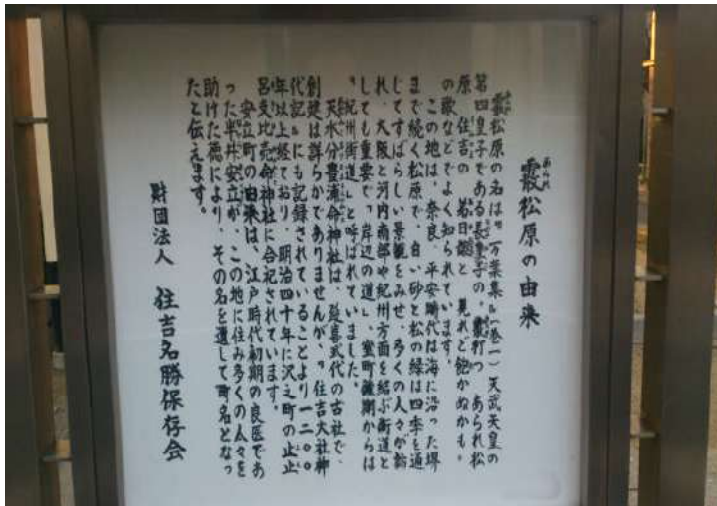 霰松原の由来
霰松原の名は『万葉集』(巻一)天武天皇の
第四皇子である長皇子の『霰打つ あられ松
原 住吉の 弟日娘と 見れど飽かぬかも』
の歌などでよく知られています。
この地は、奈良、平安時代は海に沿った堺
まで続く松原で、白い砂と松の緑は四季を通
じてすばらしい景観をみせ、多くの人々が訪
れ、大阪と河内南部や紀州方面を結ぶ街道と
しても重要で『岸辺の道』、室町後期からは
『紀州街道』と呼ばれていました。
天水分豊浦命神社は、延喜式代の古社で、
創建は詳らかでありませんが、『住吉大社神
代記』にも記録されていることより一二〇〇
年以上経ており、明治四十年に沢之町の止止
呂支比売命神社に合祀されています。
安立町の由来は、江戸時代初期の良医であ
った半井安立が、この地に住み多くの人々を
助けた徳により、その名を遺して町名となっ
たと伝えます。
財団法人 住吉名勝保存会